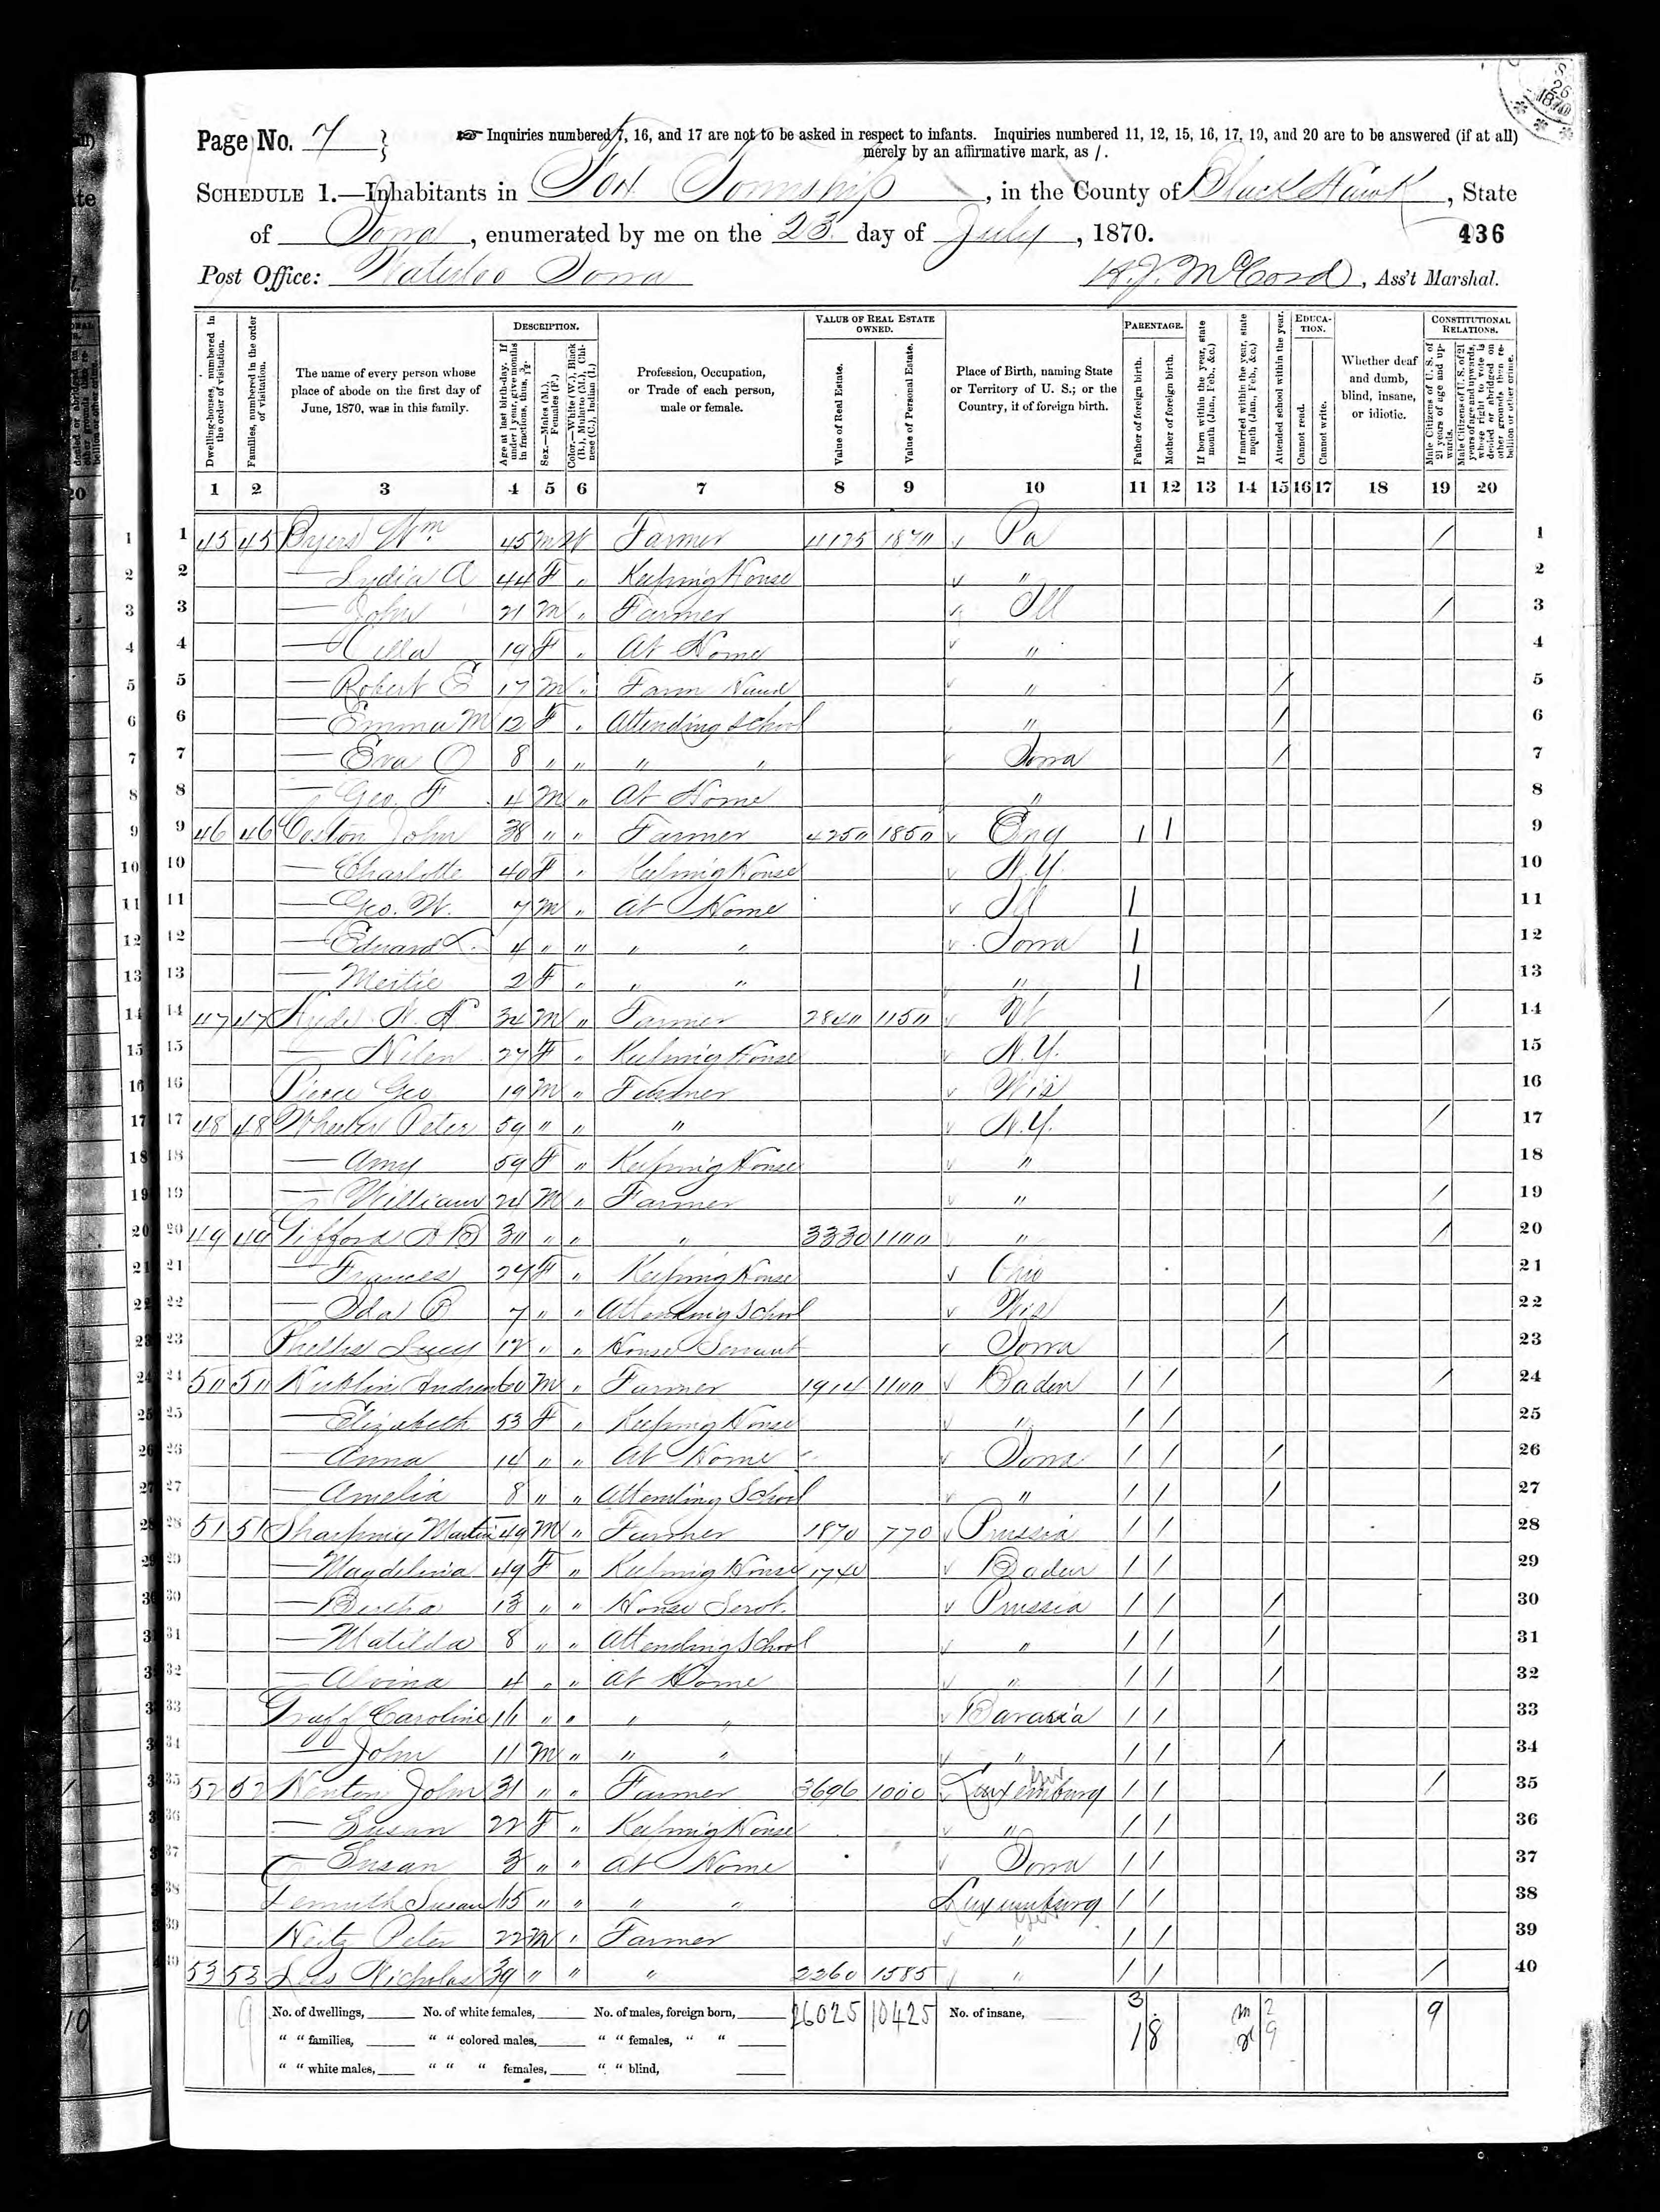 Page No. 7
☞ Inquiries numbered 7, 16, and 17 are not to be asked in respect to infants. Inquiries numbered 11, 12, 15, 16, 17, 19, and 20 are to be answered (if at all)
merely by an affirmative mark, as /.
SCHEDULE 1.—Inhabitants in Fox Township, in the County of Black Hawk, State
of Iowa, enumerated by me on the 23 day of July, 1870. 436
Post Office: Waterloo Iowa McCord, Ass't Marshal.
Dwelling-houses, numbered in the order of visitation.
Families, numbered in the order of visitation.
The name of every person whose place of abode on the first day of June, 1870, was in this family.
DESCRIPTION.
Age at last birth-day. If under 1 year, give months in fractions, thus, 3/12.
Sex.—Males (M.), Females (F.)
Color.—White (W.), Black (B.), Mulatto (M.), Chinese (C.), Indian (I.)
Profession, Occupation, or Trade of each person, male or female.
VALUE OF REAL ESTATE OWNED.
Value of Real Estate.
Value of Personal Estate.
Place of Birth, naming State or Territory of U. S.; or the Country, if of foreign birth.
PARENTAGE.
Father of foreign birth.
Mother of foreign birth.
If born within the year, state month (Jan., Feb., &c.)
If married within the year, state month (Jan., Feb., &c.)
Attended school within the year.
EDUCATION.
Cannot read.
Cannot write.
Whether deaf and dumb, blind, insane, or idiotic.
CONSTITUTIONAL RELATIONS.
Male Citizens of U. S. of 21 years of age and upwards.
Male Citizens of U. S. of 21 years of age and upwards, whose right to vote is denied or abridged on other grounds than rebellion or other crime.
1 2 3 4 5 6 7 8 9 10 11 12 13 14 15 16 17 18 19 20
1 45 45 Byers Wm 45 M W Farmer 4125 1870 Pa / 1
2 — Lydia A 44 F " Keeping House " 2
3 — John 21 M " Farmer Ill / 3
4 — 19 F " At Home " 4
5 — Robert E 17 M " Farm Hand " / 5
6 — Emma M 12 F " Attending School " / 6
7 — Eva O 8 " " " " Iowa / 7
8 — Geo. F 4 M " At Home " 8
9 46 46 John 38 " " Farmer 4250 1850 Eng / / 9
10 — Charlotte 40 F " Keeping House N.Y. 10
11 — Geo. W. 7 M " At Home Ill / 11
12 — Edward L. 4 " " " " Iowa / 12
13 — Mertie 2 F " " " " / 13
14 47 47 34 M " Farmer 2840 1150 Vt / 14
15 — Helen 27 F " Keeping House N.Y. 15
16 Pierce Geo 19 M " Farmer Wis 16
17 48 48 Wheeler Peter 59 " " " N.Y. / 17
18 — Amy 59 F " Keeping House " 18
19 — William 24 M " Farmer " / 19
20 49 49 Gifford 30 " " " 3330 1100 " / 20
21 — Frances 24 F " Keeping House Ohio 21
22 — Ida 7 " " Attending School Wis / 22
23 Lucy 12 " " House Servant Iowa / 23
24 50 50 Andrew 60 M " Farmer 1914 1100 Baden / / / 24
25 — Elizabeth 53 F " Keeping House " / / 25
26 — Anna 14 " " At Home Iowa / / / 26
27 — Amelia 8 " " Attending School " / / / 27
28 51 51 Martin 49 M " Farmer 1870 770 Prussia / / 28
29 — Magdelina 49 F " Keeping House 1740 Baden / / 29
30 — Bertha 13 " " House Servt. Prussia / / / 30
31 — Matilda 8 " " Attending School " / / / 31
32 — Alvina 4 " " At Home " / / / 32
33 Graff Caroline 16 " " " " Bavaria / / 33
34 — John 11 M " " " " / / / 34
35 52 52 John 31 " " Farmer 3696 1000 Luxemburg / / / 35
36 — Susan 22 F " Keeping House " / / 36
37 — Susan 3 " " At Home Iowa / / 37
38 Demuth Susan 65 " " " " Luxemburg / / 38
39 Peter 22 M " Farmer " / / 39
40 53 53 Nicholas 39 " " " 2260 1585 " / / / 40
No. of dwellings, No. of white females, No. of males, foreign born, 26025 10425 No. of insane, 3 2 9
" " families, " " colored males, " " females, " " 18 9
" " white males, " " " females, " " blind,